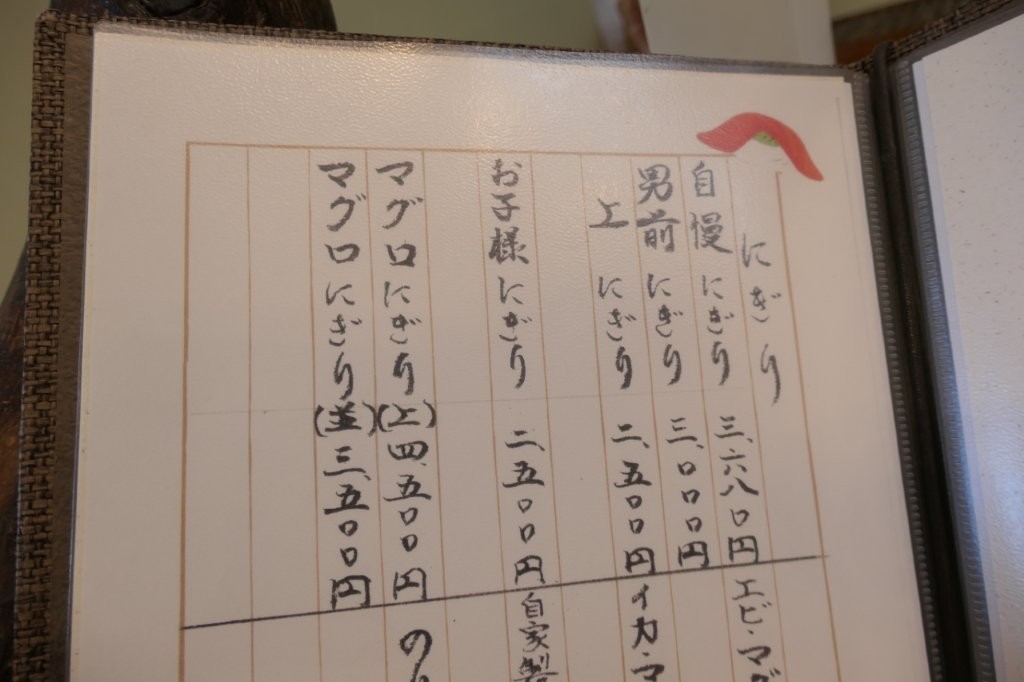 にぎり
自慢にぎり 三、六八〇円 エビ・マグ
男前にぎり 三、〇〇〇円
上にぎり 二、五〇〇円 イカ・マ
お子様にぎり 二、五〇〇円 自家製
マグロにぎり(上) 四、五〇〇円 の
マグロにぎり(並) 三、五〇〇円